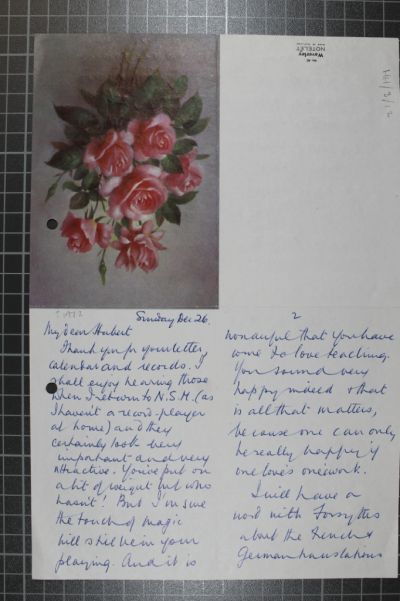 Waverley
NOTELET
21/2/1991
? 1972
Sunday Dec 26.
My dear Herbert
Thank you for your letter,
calendar and records. I
shall enjoy hearing those
when I return to N.S.M. (as
I haven't a record-player
at home) and they
certainly look very
important and very
attractive. You've put on
a bit of weight but who
hasn't! But I'm sure
the touch of magic
will still be in your
playing. And it is
2
wonderful that you have
come to love teaching.
You sound very
happy indeed & that
is all that matters,
because one can only
be really happy if
one loves one's work.
I will have a
word with Forsyths
about the French &
German translations